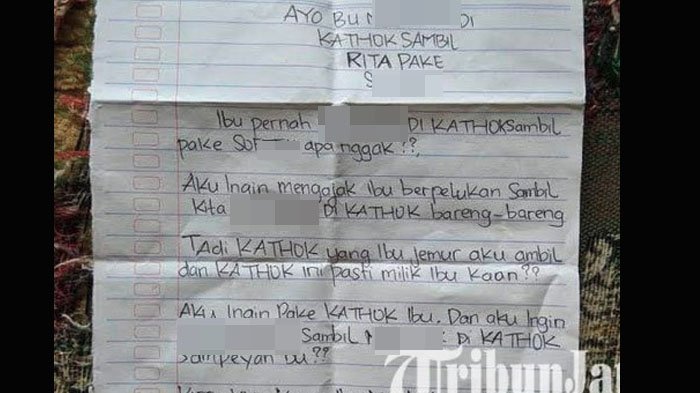 AYO BU
DI
KATHOK SAMBIL
RITA PAKE
S
Ibu pernah DI KATHOK sambil
pake Sof apa nggak ??
Aku Ingin mengajak Ibu berpelukan Sambil
Kita DI KATHOK bareng-bareng
TAdi KATHOK yang Ibu jemur aku ambil
dan KATHOK Ini pasti milik Ibu Kaan??
Aku Ingin Pake KATHOK Ibu. Dan aku Ingin
Sambil DI KATHOK
Sampeyan bu??
TribunJa